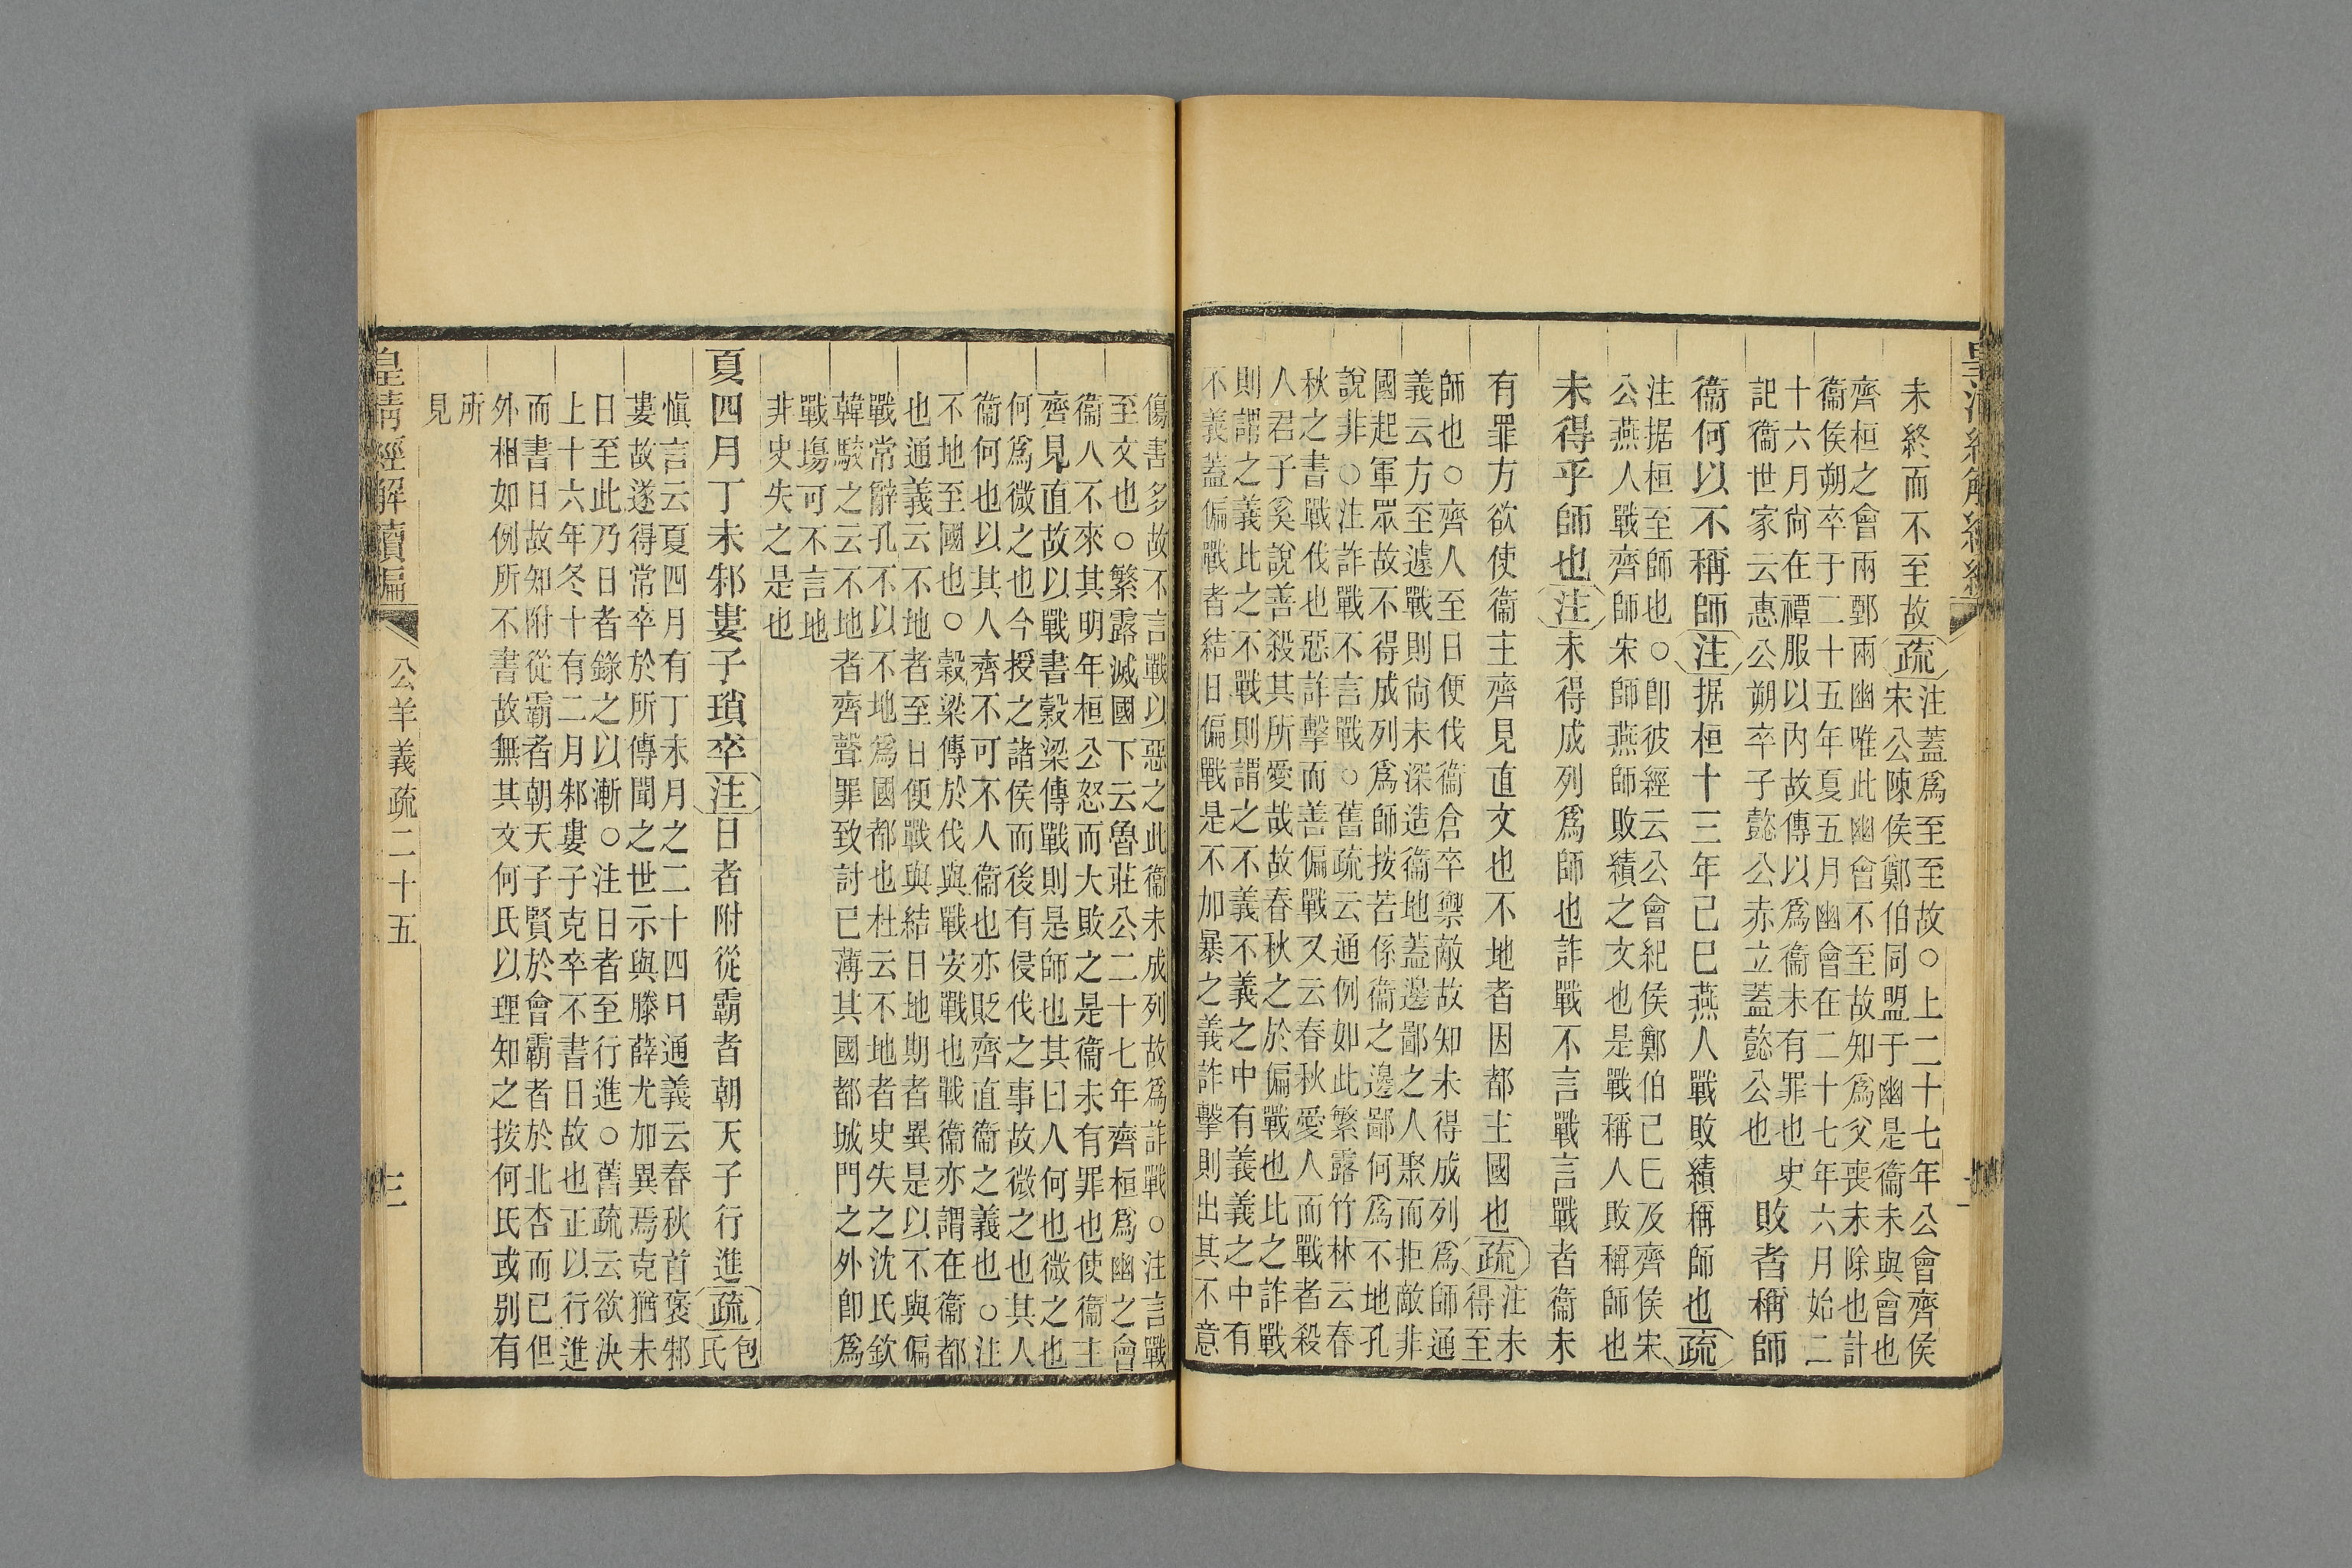 皇清經解續編
未終而不至故疏注蓋爲至至故○上二十七年公會齊侯
宋公陳侯鄭伯同盟于幽是衞未與會也
齊桓之會兩鄄兩幽唯此幽會不至故知爲父喪未除也計
衞侯朔卒于二十五年夏五月幽會在二十七年六月始二
十六月尙在禫服以內故傳以爲衞未有罪也史
記衞世家云惠公朔卒子懿公赤立蓋懿公也
敗者稱師
衞何以不稱師注据桓十三年己巳燕人戰敗績稱師也疏
注据桓至師也○卽彼經云公會紀侯鄭伯己巳及齊侯宋
公燕人戰齊師宋師燕師敗績之文也是戰稱人敗稱師也
未得乎師也注未得成列爲師也詐戰不言戰言戰者衞未
有罪方欲使衞主齊見直文也不地者因都主國也疏注未
得至
師也○齊人至日便伐衞倉卒禦敵故知未得成列爲師通
義云方至遽戰則尙未深造衞地蓋邊鄙之人聚而拒敵非
國起軍眾故不得成列爲師按若係衞之邊鄙何爲不地孔
說非○注詐戰不言戰○舊疏云通例如此繁露竹林云春
秋之書戰伐也惡詐擊而善偏戰又云春秋愛人而戰者殺
人君子奚說善殺其所愛哉故春秋之於偏戰也比之詐戰
則謂之義比之不戰則謂之不義不義之中有義義之中有
不義蓋偏戰者結日偏戰是不加暴之義詐擊則出其不意
傷害多故不言戰以惡之此衞未成列故爲詐戰○注言戰
至文也○繁露滅國下云魯莊公二十七年齊桓爲幽之會
衞人不來其明年桓公怒而大敗之是衞未有罪也使衞主
齊見直故以戰書穀梁傳戰則是師也其曰人何也微之也
何爲微之也今授之諸侯而後有侵伐之事故微之也其人
衞何也以其人齊不可不人衞也亦貶齊直衞之義也○注
不地至國也○穀梁傳於伐與戰安戰也戰衞亦謂在衞都
也通義云不地者至日便戰與結日地期者異是以不與偏
戰常辭孔不以不地爲國都也杜云不地者史失之沈氏欽
韓駮之云不地者齊聲罪致討已薄其國都城門之外卽爲
戰場可不言地
非史失之是也
夏四月丁未邾婁子瑣卒注日者附從霸者朝天子行進疏包
氏
愼言云夏四月有丁未月之二十四日通義云春秋首褒邾
婁故遂得常卒於所傳聞之世示與滕薛尤加異焉克猶未
日至此乃日者錄之以漸○注日者至行進○舊疏云欲決
上十六年冬十有二月邾婁子克卒不書日故也正以行進
而書日故知附從霸者朝天子賢於會霸者於北杏而已但
外相如例所不書故無其文何氏以理知之按何氏或别有
所
見
皇淸經解續編
公羊義疏二十五
三